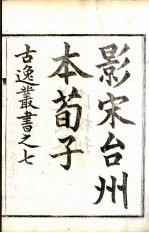 影宋台州
本荀子
古逸叢書之七